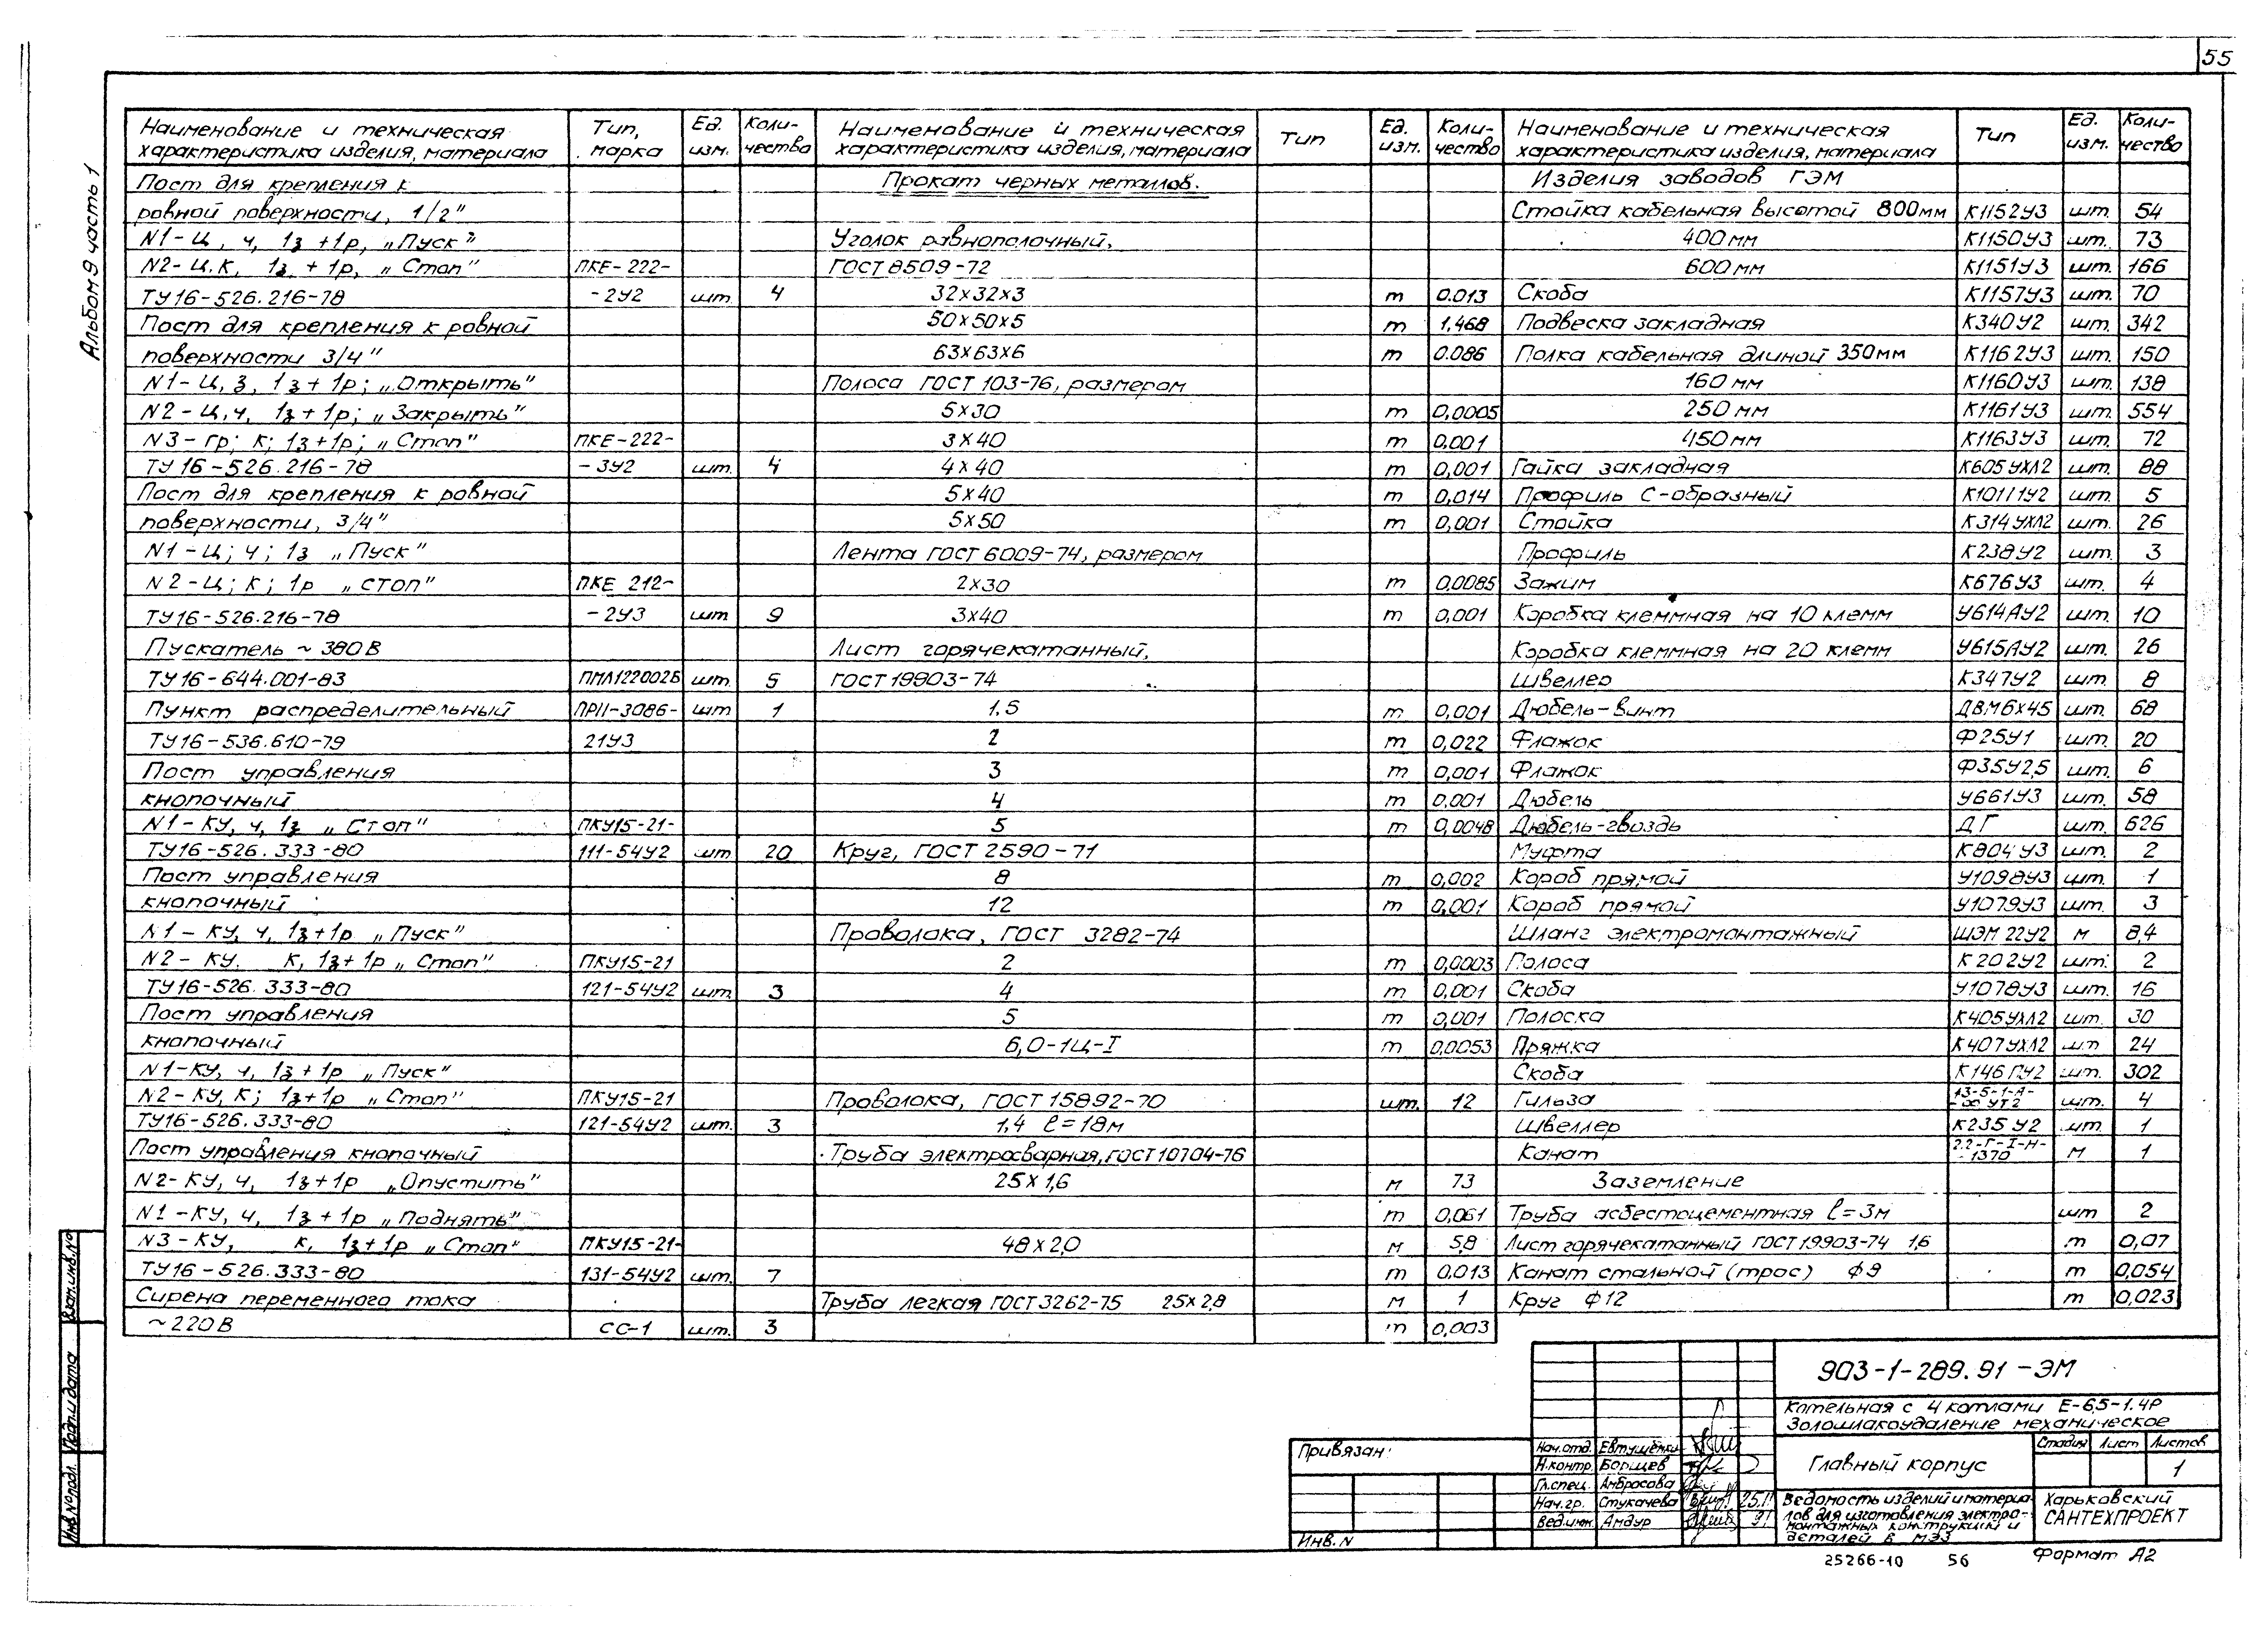 55
Альбом 9 часть 1
Наименование и техническая характеристика изделия, материала | Тип, марка | Ед. изм. | Количество
Пост для крепления к
ровной поверхности, 1/2"
N1-Ц, ч, 1з+1р, „Пуск"
N2-Ц.К, 1з + 1р, „Стоп" ПКЕ-222-
ТУ16-526.216-78 -2У2 шт. 4
Пост для крепления к ровной
поверхности 3/4"
N1-Ц, З, 1з+1р; „Открыть"
N2-Ц,ч, 1з+1р; „Закрыть"
N3-гр; к; 1з+1р; „Стоп" ПКЕ-222-
ТУ16-526.216-78 -3У2 шт. 4
Пост для крепления к ровной
поверхности, 3/4"
N1-Ц; ч; 1з „Пуск"
N2-Ц; К; 1р „стоп" ПКЕ 212-
ТУ16-526.216-78 -2У3 шт 9
Пускатель ~ 380В
ТУ16-644.001-83 ПМЛ122002Б шт. 5
Пункт распределительный ПР11-3086- шт 1
ТУ16-536.610-79 21У3
Пост управления
кнопочный
N1-КУ, ч, 1з „Стоп" ПКУ15-21-
ТУ16-526.333-80 111-54У2 шт 20
Пост управления
кнопочный
N1-КУ, ч, 1з+1р „Пуск"
N2-КУ. К, 1з+1р „Стоп" ПКУ15-21
ТУ16-526.333-80 121-54У2 шт. 3
Пост управления
кнопочный
N1-КУ, ч, 1з+1р „Пуск"
N2-КУ, К; 1з+1р „Стоп" ПКУ15-21
ТУ16-526.333-80 121-54У2 шт. 3
Пост управления кнопочный
N2-КУ, ч, 1з+1р „Опустить"
N1-КУ, ч, 1з+1р „Поднять"
N3-КУ, к, 1з+1р „Стоп" ПКУ15-21-
ТУ16-526.333-80 131-54У2 шт. 7
Сирена переменного тока
~220В СС-1 шт. 3
Наименование и техническая характеристика изделия, материала | Тип | Ед. изм. | Количество
Прокат черных металлов.
Уголок равнополочный,
ГОСТ 8509-72
32х32х3 т 0.013
50х50х5 т 1,468
63х63х6 т 0.086
Полоса ГОСТ 103-76, размером
5х30 т 0,0005
3х40 т 0,001
4х40 т 0,001
5х40 т 0,014
5х50 т 0,001
Лента ГОСТ 6009-74, размером
2х30 т 0,0085
3х40 т 0,001
Лист горячекатанный,
ГОСТ 19903-74
1,5 т 0,001
2 т 0,022
3 т 0,001
4 т 0,001
5 т 0,0048
Круг, ГОСТ 2590-71
8 т 0,002
12 т 0,001
Проволока, ГОСТ 3282-74
2 т 0,0003
4 т 0,001
5 т 0,001
6,0-1Ц-I т 0,0053
Проволока, ГОСТ 15892-70 шт. 12
1,4 ℓ=18м
Труба электросварная, ГОСТ 10704-76
25х1,6 м 73
т 0,061
48х2,0 м 5,8
т 0.013
Труба легкая ГОСТ 3262-75 25х2,8 м 1
т 0,003
Наименование и техническая характеристика изделия, материала | Тип | Ед. изм. | Количество
Изделия заводов ГЭМ
Стойка кабельная высотой 800мм К1152У3 шт. 54
400мм К1150У3 шт. 73
600мм К1151У3 шт. 166
Скоба К1157У3 шт. 70
Подвеска закладная К340У2 шт. 342
Полка кабельная длиной 350мм К1162У3 шт. 150
160мм К1160У3 шт. 138
250мм К1161У3 шт. 554
450мм К1163У3 шт. 72
Гайка закладная К605УХЛ2 шт. 88
Профиль С-образный К101/1У2 шт. 5
Стойка К314УХЛ2 шт. 26
Профиль К238У2 шт. 3
Зажим К676У3 шт. 4
Коробка клеммная на 10 клемм У614АУ2 шт. 10
Коробка клеммная на 20 клемм У615АУ2 шт. 26
Швеллер К347У2 шт. 8
Дюбель-винт ДВМ6х45 шт. 68
Флажок Ф25У1 шт. 20
Флажок Ф35У2,5 шт. 6
Дюбель У661У3 шт. 58
Дюбель-гвоздь ДГ шт. 626
Муфта К804У3 шт. 2
Короб прямой У1098У3 шт. 1
Короб прямой У1079У3 шт. 3
Шланг электромонтажный ШЭМ 22У2 м 8,4
Полоса К202У2 шт. 2
Скоба У1078У3 шт. 16
Полоска К405УХЛ2 шт. 30
Пряжка К407УХЛ2 шт 24
Скоба К146ПУ2 шт. 302
Гильза шт. 4
Швеллер К235У2 шт. 1
Канат 2.2-Г-I-Н-1370 м 1
Заземление
Труба асбестоцементная ℓ=3м шт 2
Лист горячекатанный ГОСТ 19903-74 1,6 т 0,07
Канат стальной (трос) ф9 т 0,054
Круг ф12 т 0,023
903-1-289.91-ЭМ
Котельная с 4 котлами Е-6,5-1.4Р
Золошлакоудаление механическое
Главный корпус
Стадия Лист Листов
1
Ведомость изделий и материа-
лов для изготовления электро-
монтажных конструкций и
деталей в МЭЗ
Харьковский
САНТЕХПРОЕКТ
Привязан:
Инв.N
Нач.отд. Евтушенко
Н.контр. Борщев
Гл.спец. Амбросова
Нач.гр. Стукачева
Вед.инж. Амдур
Взам.инв.№
Подп.и дата
Инв.№подл.
25266-10 56 Формат А2